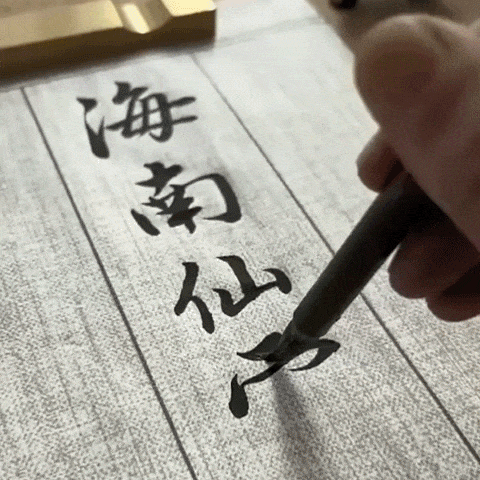 海南仙